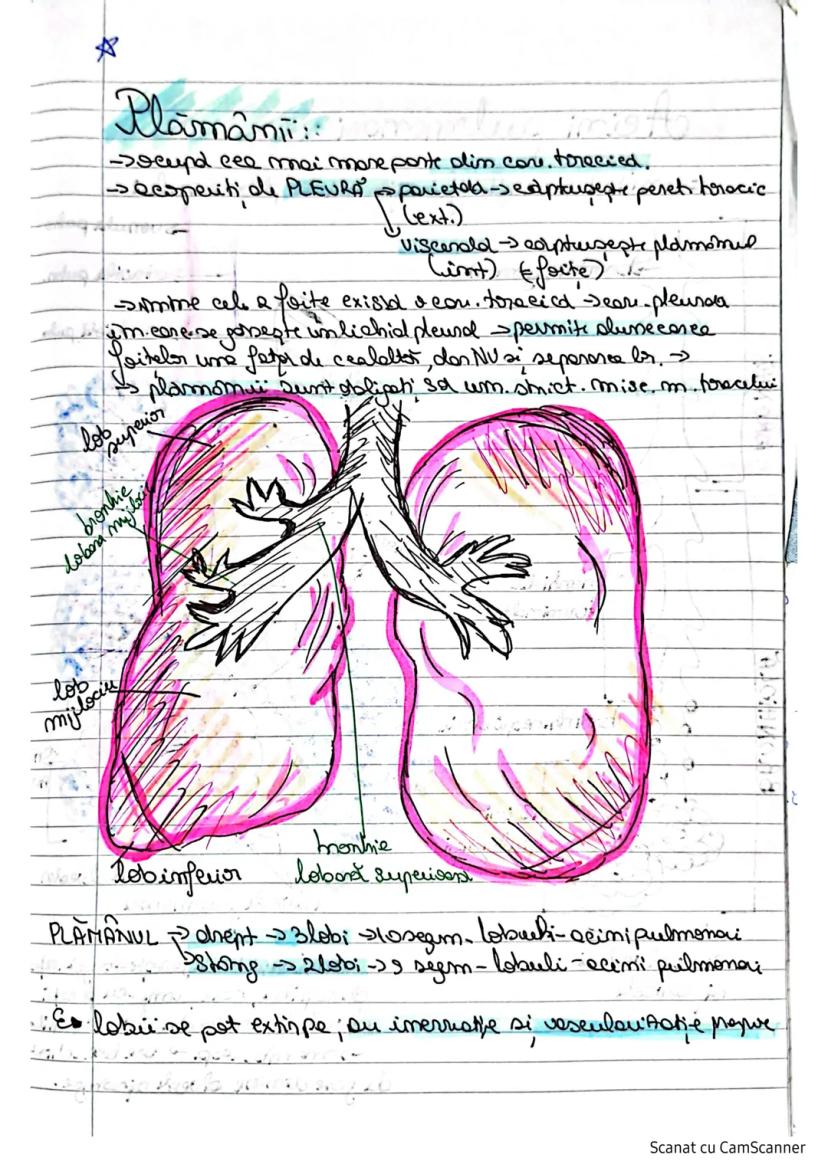 Plămânii:
→ocupă cea mai mare parte din cav. toracică.
→acoperiți de PLEURĂ → parietală→căptușește pereți toracic
(ext.)
viscerală→căptușește plămânul
(int) (foițe)
→Între cele 2 foițe există o cav. toracică →cav. pleurală
în care se găsește un lichid pleural →permite alunecarea
foițelor una față de cealaltă, dar NU și separarea lor. →
→ plămânii sunt obligați să urm. strict. mișc. m. toracelui
lob
superior
bronhie
lobară mijlocie
lob
mijlociu
lob inferior
bronhie
lobară superioară
PLĂMÂNUL → drept → 3 lobi →10 segm- lobuli-acini pulmonari
stâng → 2 lobi →9 segm-lobuli-acini pulmonari
lobii se pot extirpa; au inervație și vascularizație proprie
Scanat cu CamScanner